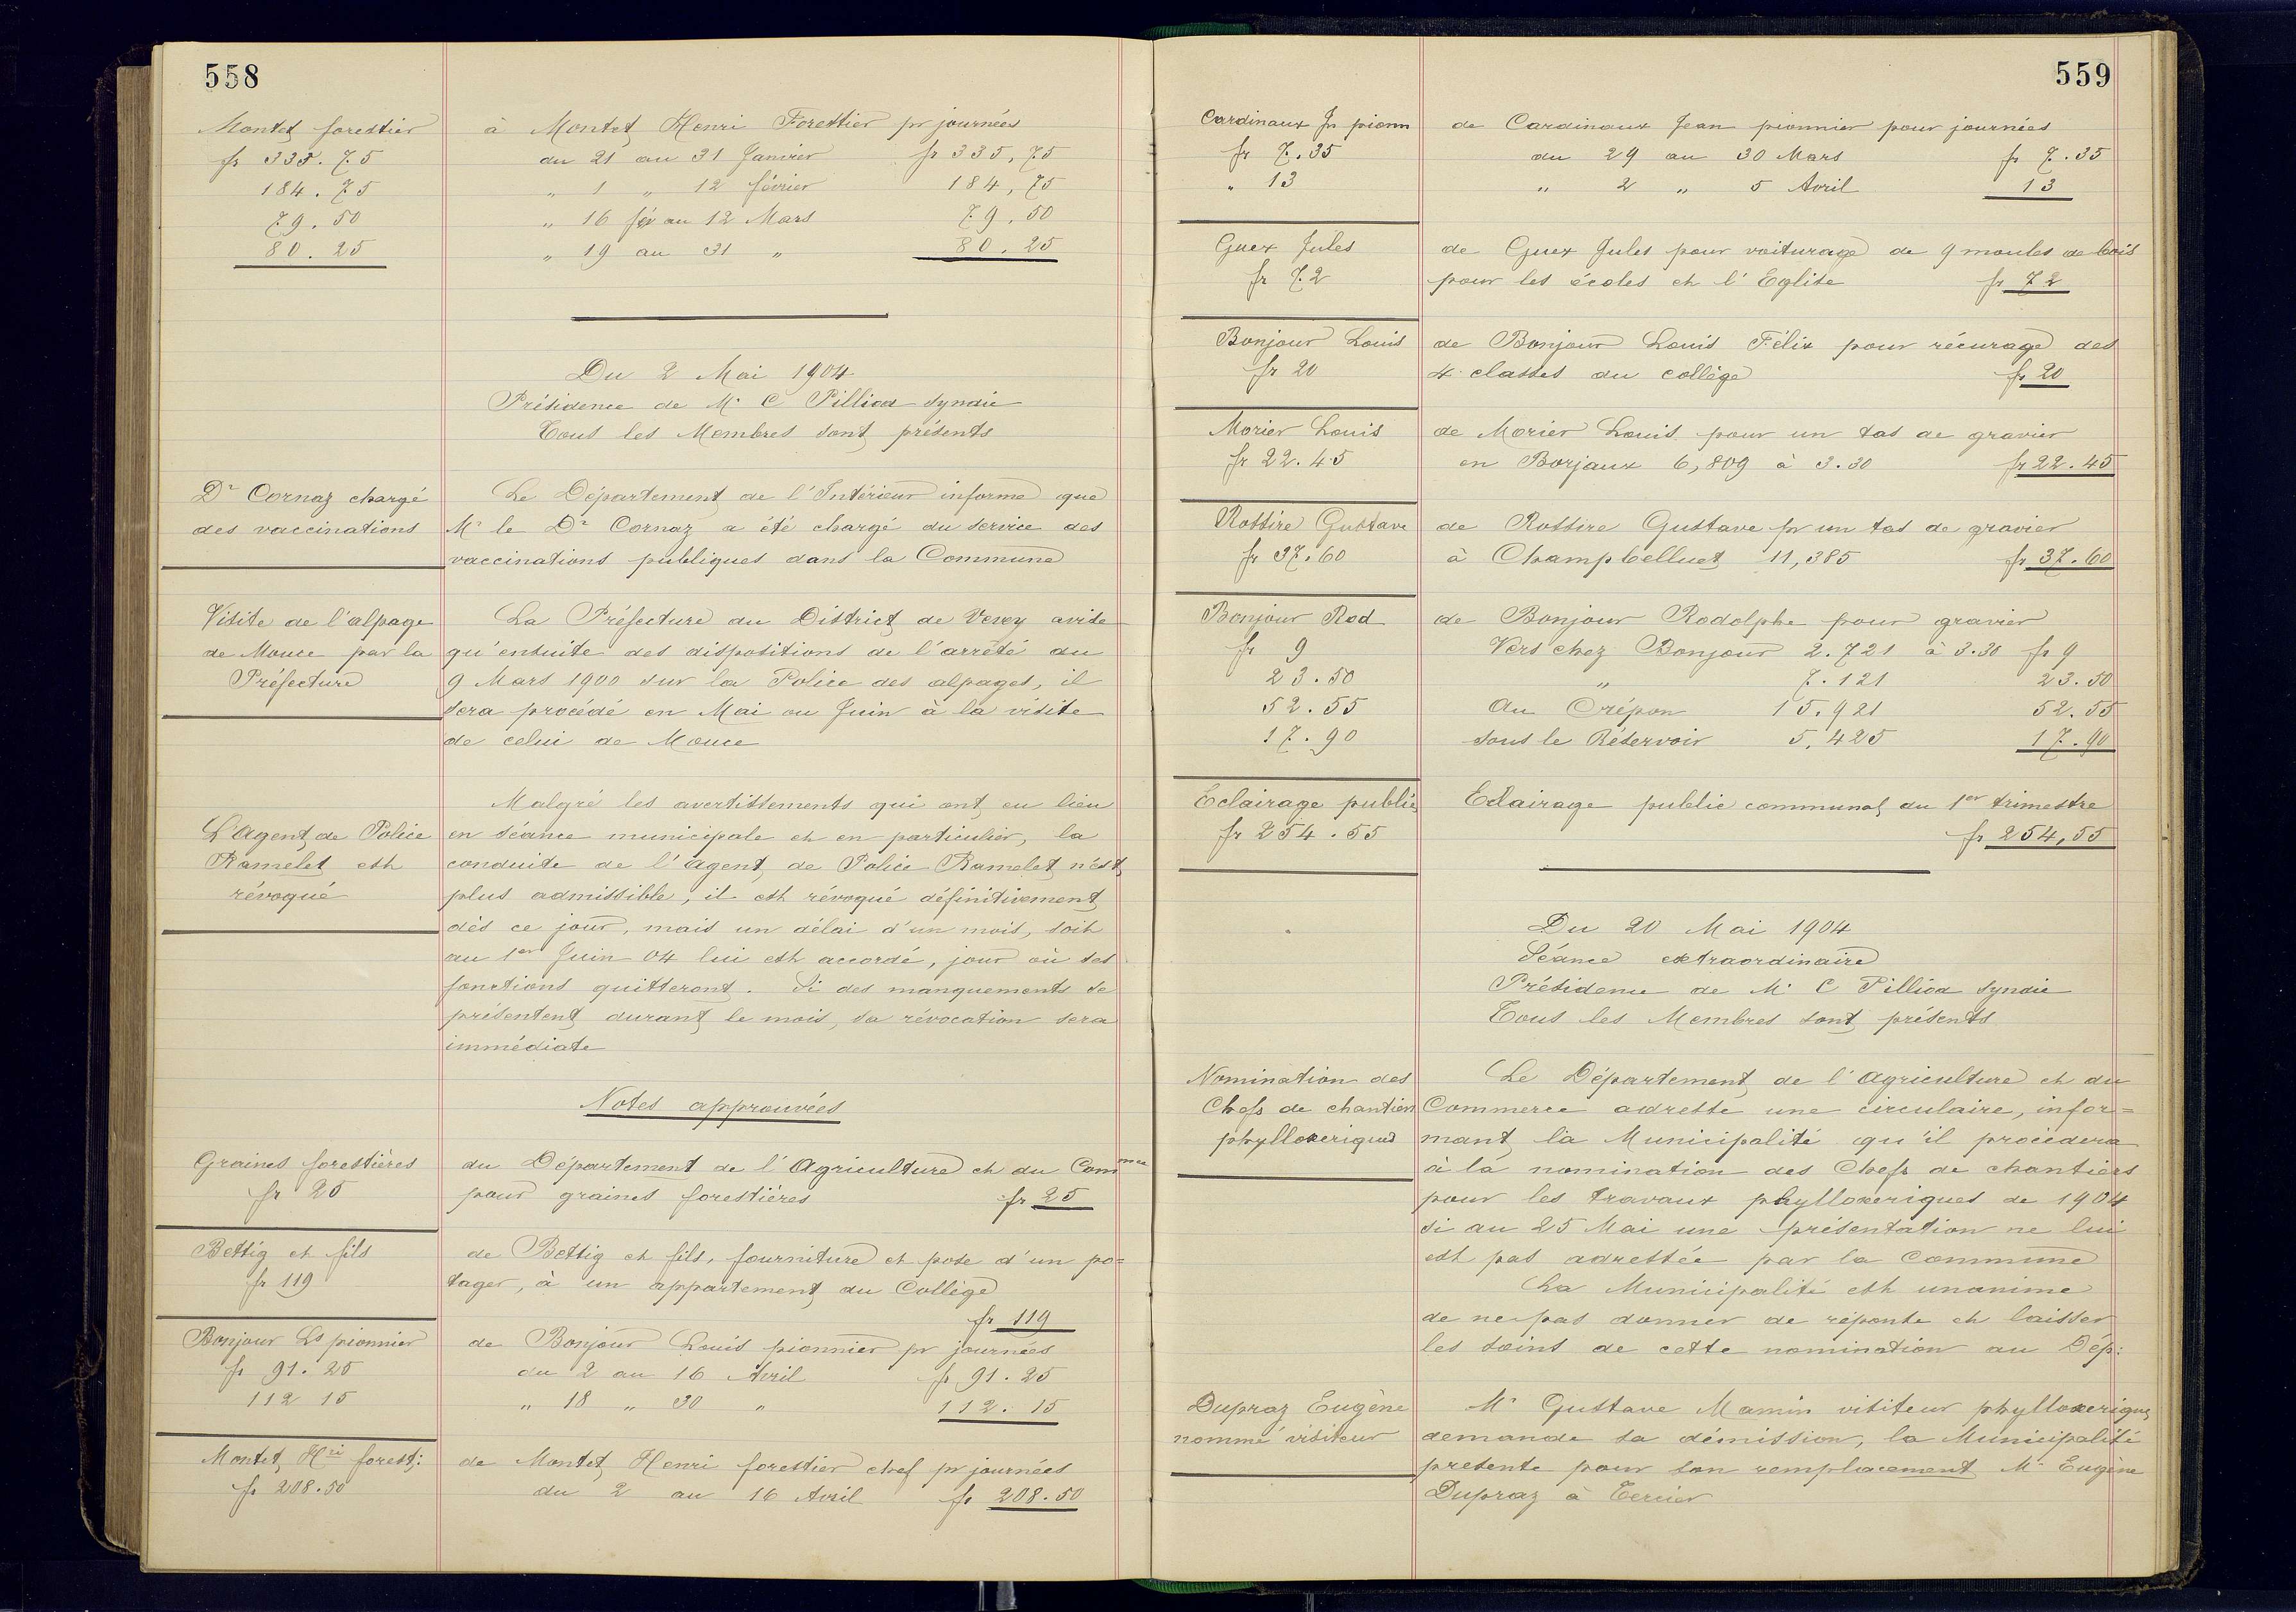 558
Montet forestier
fr 335.75
184.75
79.50
80.25
à Montet Henri Forestier pr journées
du 21 au 31 Janvier fr 335,75
" 1 " 12 février 184,75
" 16 fév au 12 Mars 79,50
" 19 au 31 " 80.25
Du 2 Mai 1904
Présidence de Mr C Pilliod syndic
Tous les Membres sont présents
Dr Cornaz chargé
des vaccinations
Le Département de l'Intérieur informe que
Mr le Dr Cornaz a été chargé du service des
vaccinations publiques dans la Commune
Visite de l'alpage
de Mouce par la
Préfecture
La Préfecture du District de Vevey avise
qu'ensuite des dispositions de l'arrêté du
9 Mars 1900 sur la Police des alpages, il
sera procédé en Mai ou Juin à la visite
de celui de Mouce
L'Agent de Police
Ramelet est
révoqué
Malgré les avertissements qui ont eu lieu
en séance municipale et en particulier, la
conduite de l'agent de Police Ramelet n'est
plus admissible, il est révoqué définitivement
dès ce jour, mais un délai d'un mois, soit
au 1er Juin 04 lui est accordé, jour où ses
fonctions quitteront. Si des manquements se
présentent durant le mois, sa révocation sera
immédiate
Notes approuvées
Graines forestières
fr 25
du Département de l'Agriculture et du Commce
pour graines forestières fr 25
Bettig et fils
fr 119
de Bettig et fils, fourniture et pose d'un po=
tager, à un appartement du Collège
fr 119
Bonjour Ls pionnier
fr 91.25
112 15
de Bonjour Louis pionnier pr journées
du 2 au 16 Avril fr 91.25
" 18 " 30 " 112.15
Montet Hri forest:
fr 208.50
de Montet Henri forestier chef pr journées
du 2 au 16 Avril fr 208.50
559
Cardinaux Jn pionn
fr 7.35
" 13
de Cardinaux Jean pionnier pour journées
du 29 au 30 Mars fr 7.35
" 2 " 5 Avril 13
Guex Jules
fr 72
de Guex Jules pour voiturage de 9 moules de bois
pour les écoles et l'Eglise fr 72
Bonjour Louis
fr 20
de Bonjour Louis Félix pour récurage des
4 classes du collège fr 20
Morier Louis
fr 22.45
de Morier Louis pour un tas de gravier
en Borjaux 6,809 à 3.30 fr 22.45
Rossire Gustave
fr 37.60
de Rossire Gustave pr un tas de gravier
à Champbelluet 11,385 fr 37.60
Bonjour Rod
fr 9
23.50
52.55
17.90
de Bonjour Rodolphe pour gravier
Vers chez Bonjour 2.721 à 3.30 fr 9
" 7.121 23.50
Au Crépon 15.921 52.55
sous le Réservoir 5,425 17.90
Eclairage public
fr 254.55
Eclairage public communal du 1er trimestre
fr 254,55
Du 20 Mai 1904
Séance extraordinaire
Présidence de Mr C Pilliod syndic
Tous les Membres sont présents
Nomination des
Chefs de chantiers
phylloxeriques
Le Département de l'Agriculture et du
Commerce adresse une circulaire, infor=
mant la Municipalité qu'il procèdera
à la nomination des Chefs de chantiers
pour les travaux phylloxeriques de 1904
si au 25 Mai une présentation ne lui
est pas adressée par la Commune
La Municipalité est unanime
de ne pas donner de réponse et laisser
les soins de cette nomination au Dép:
Dupraz Eugène
nommé visiteur
Mr Gustave Mamin visiteur phylloxerique
demande sa démission, la Municipalité
présente pour son remplacement Mr Eugène
Dupraz à Tercier